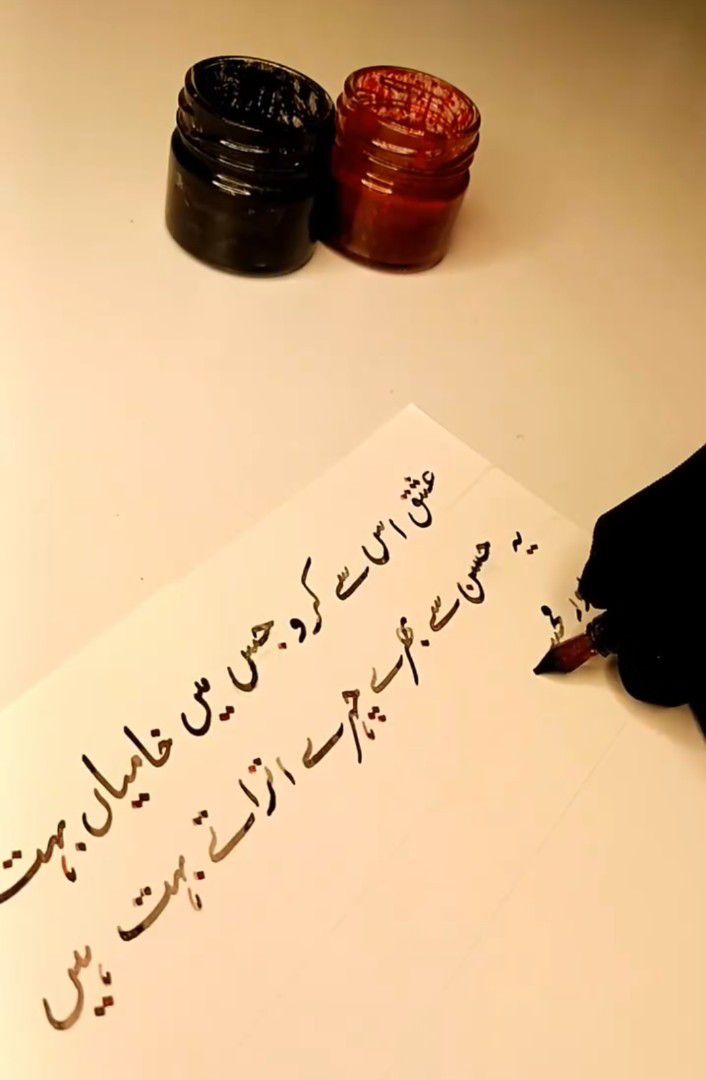 عشق اس سے کرو جس میں خامیاں بہت
یہ حسن سے بھرے چہرے اتراتے بہت ہیں